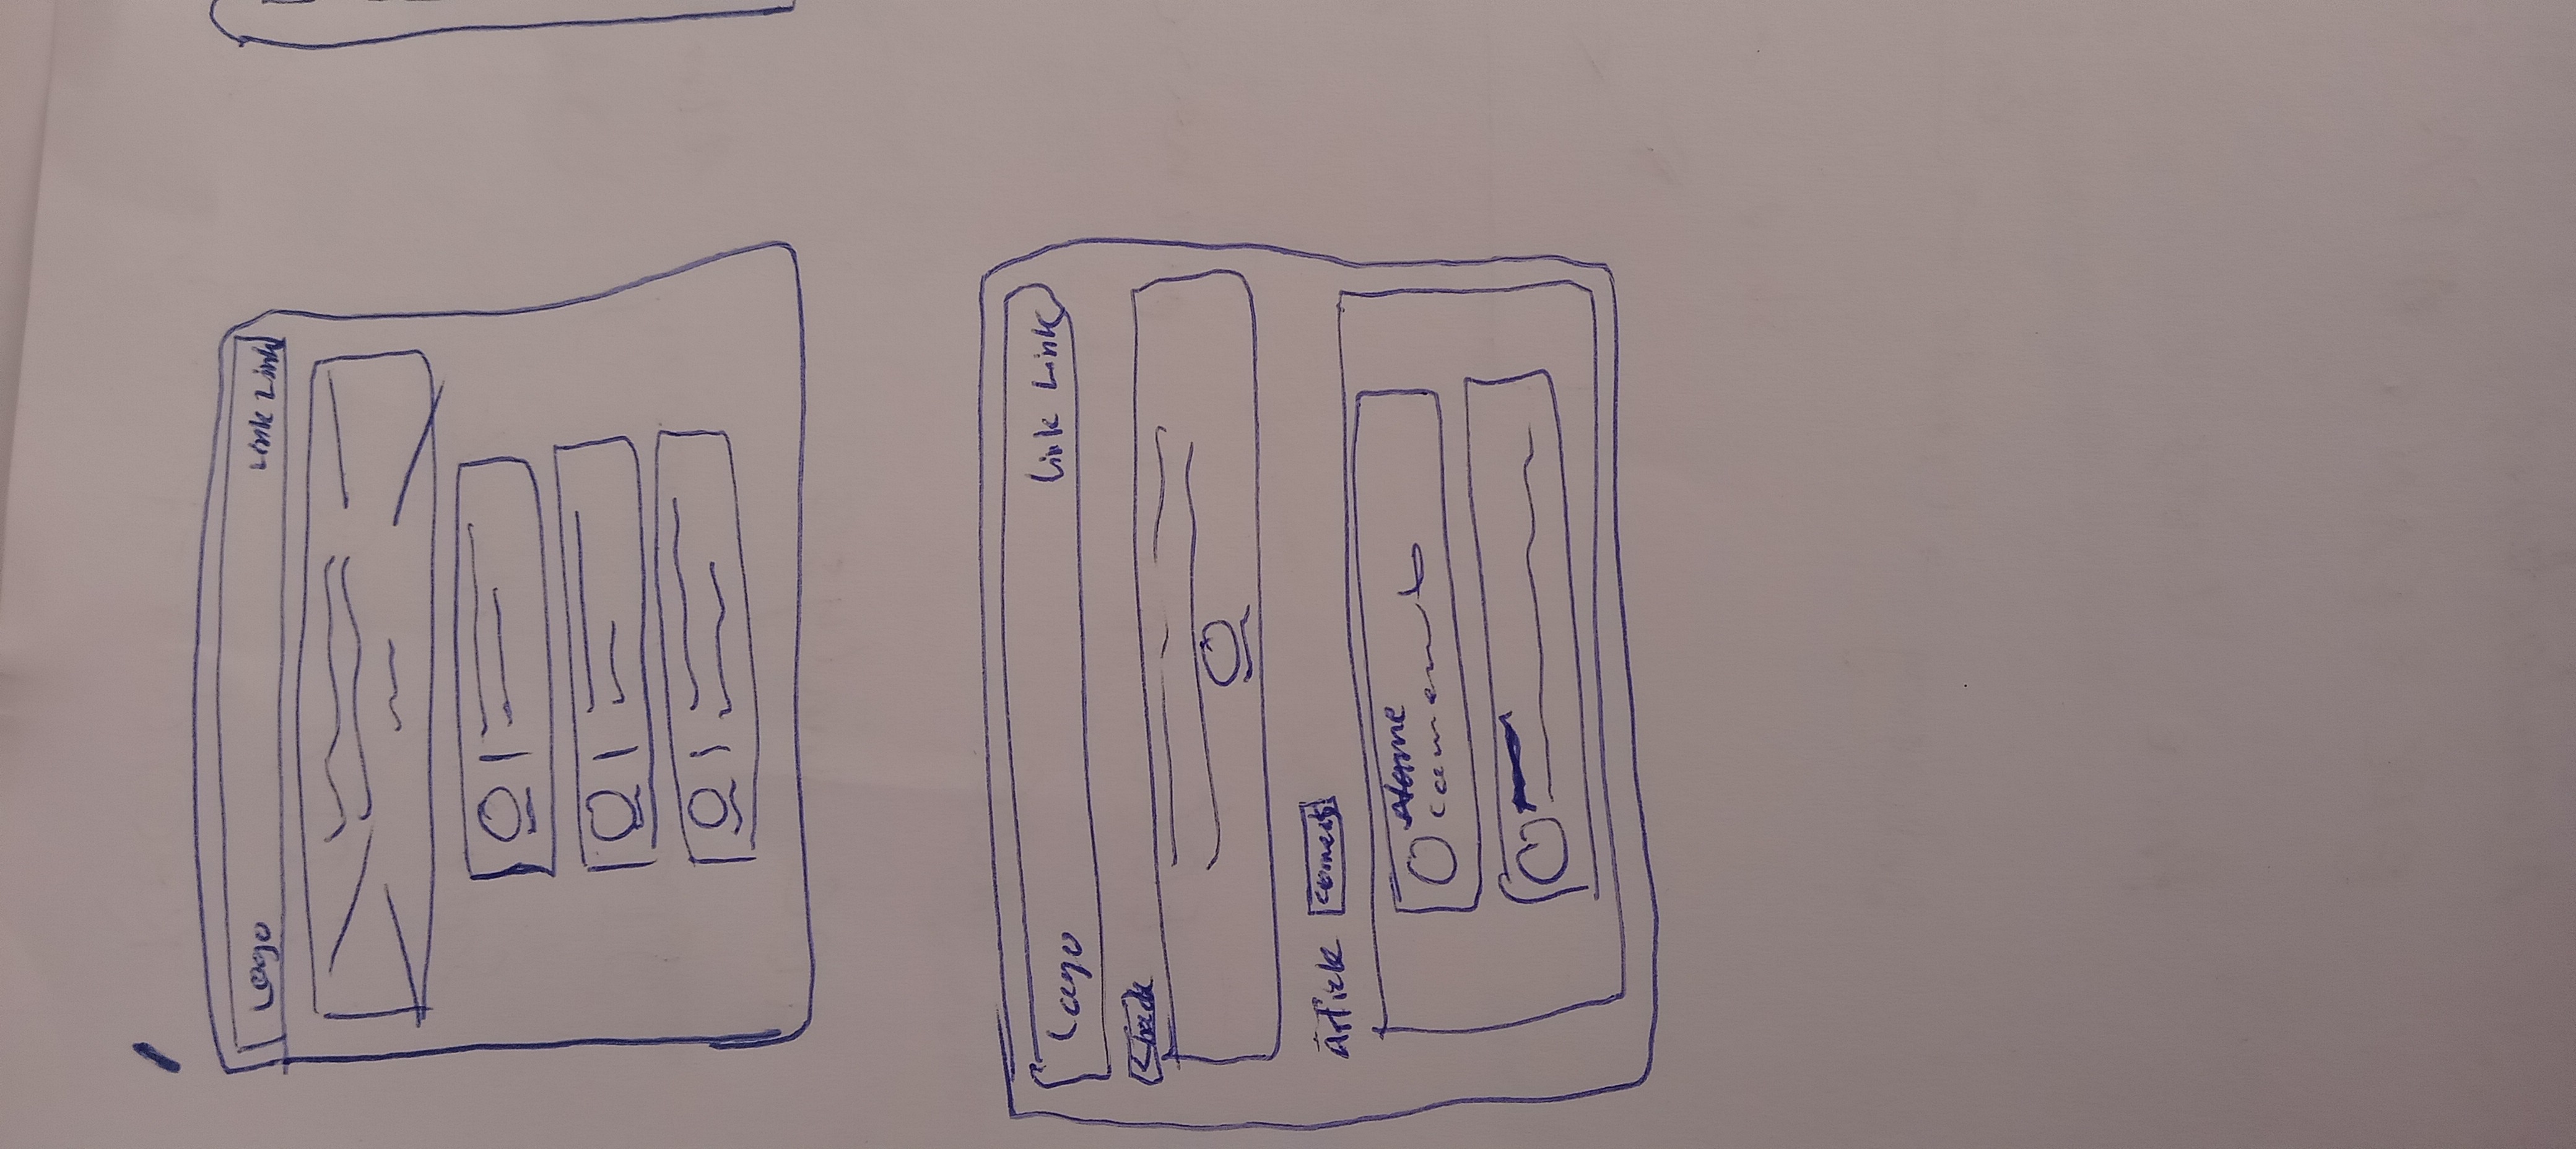 Logo Link Link
Logo Link Link
< back
Article Coments
Name
coment